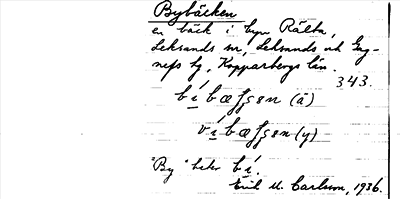 Bybäcken
en bäck i byn Rälta,
Leksands sn, Leksands och Gag-
nefs tg, Kopparbergs län.
343.
bíbæʃʃɛn (ä)
víbæʃʃɛn (y)
"By" heter bí.
Erik M. Carlsson, 1936.